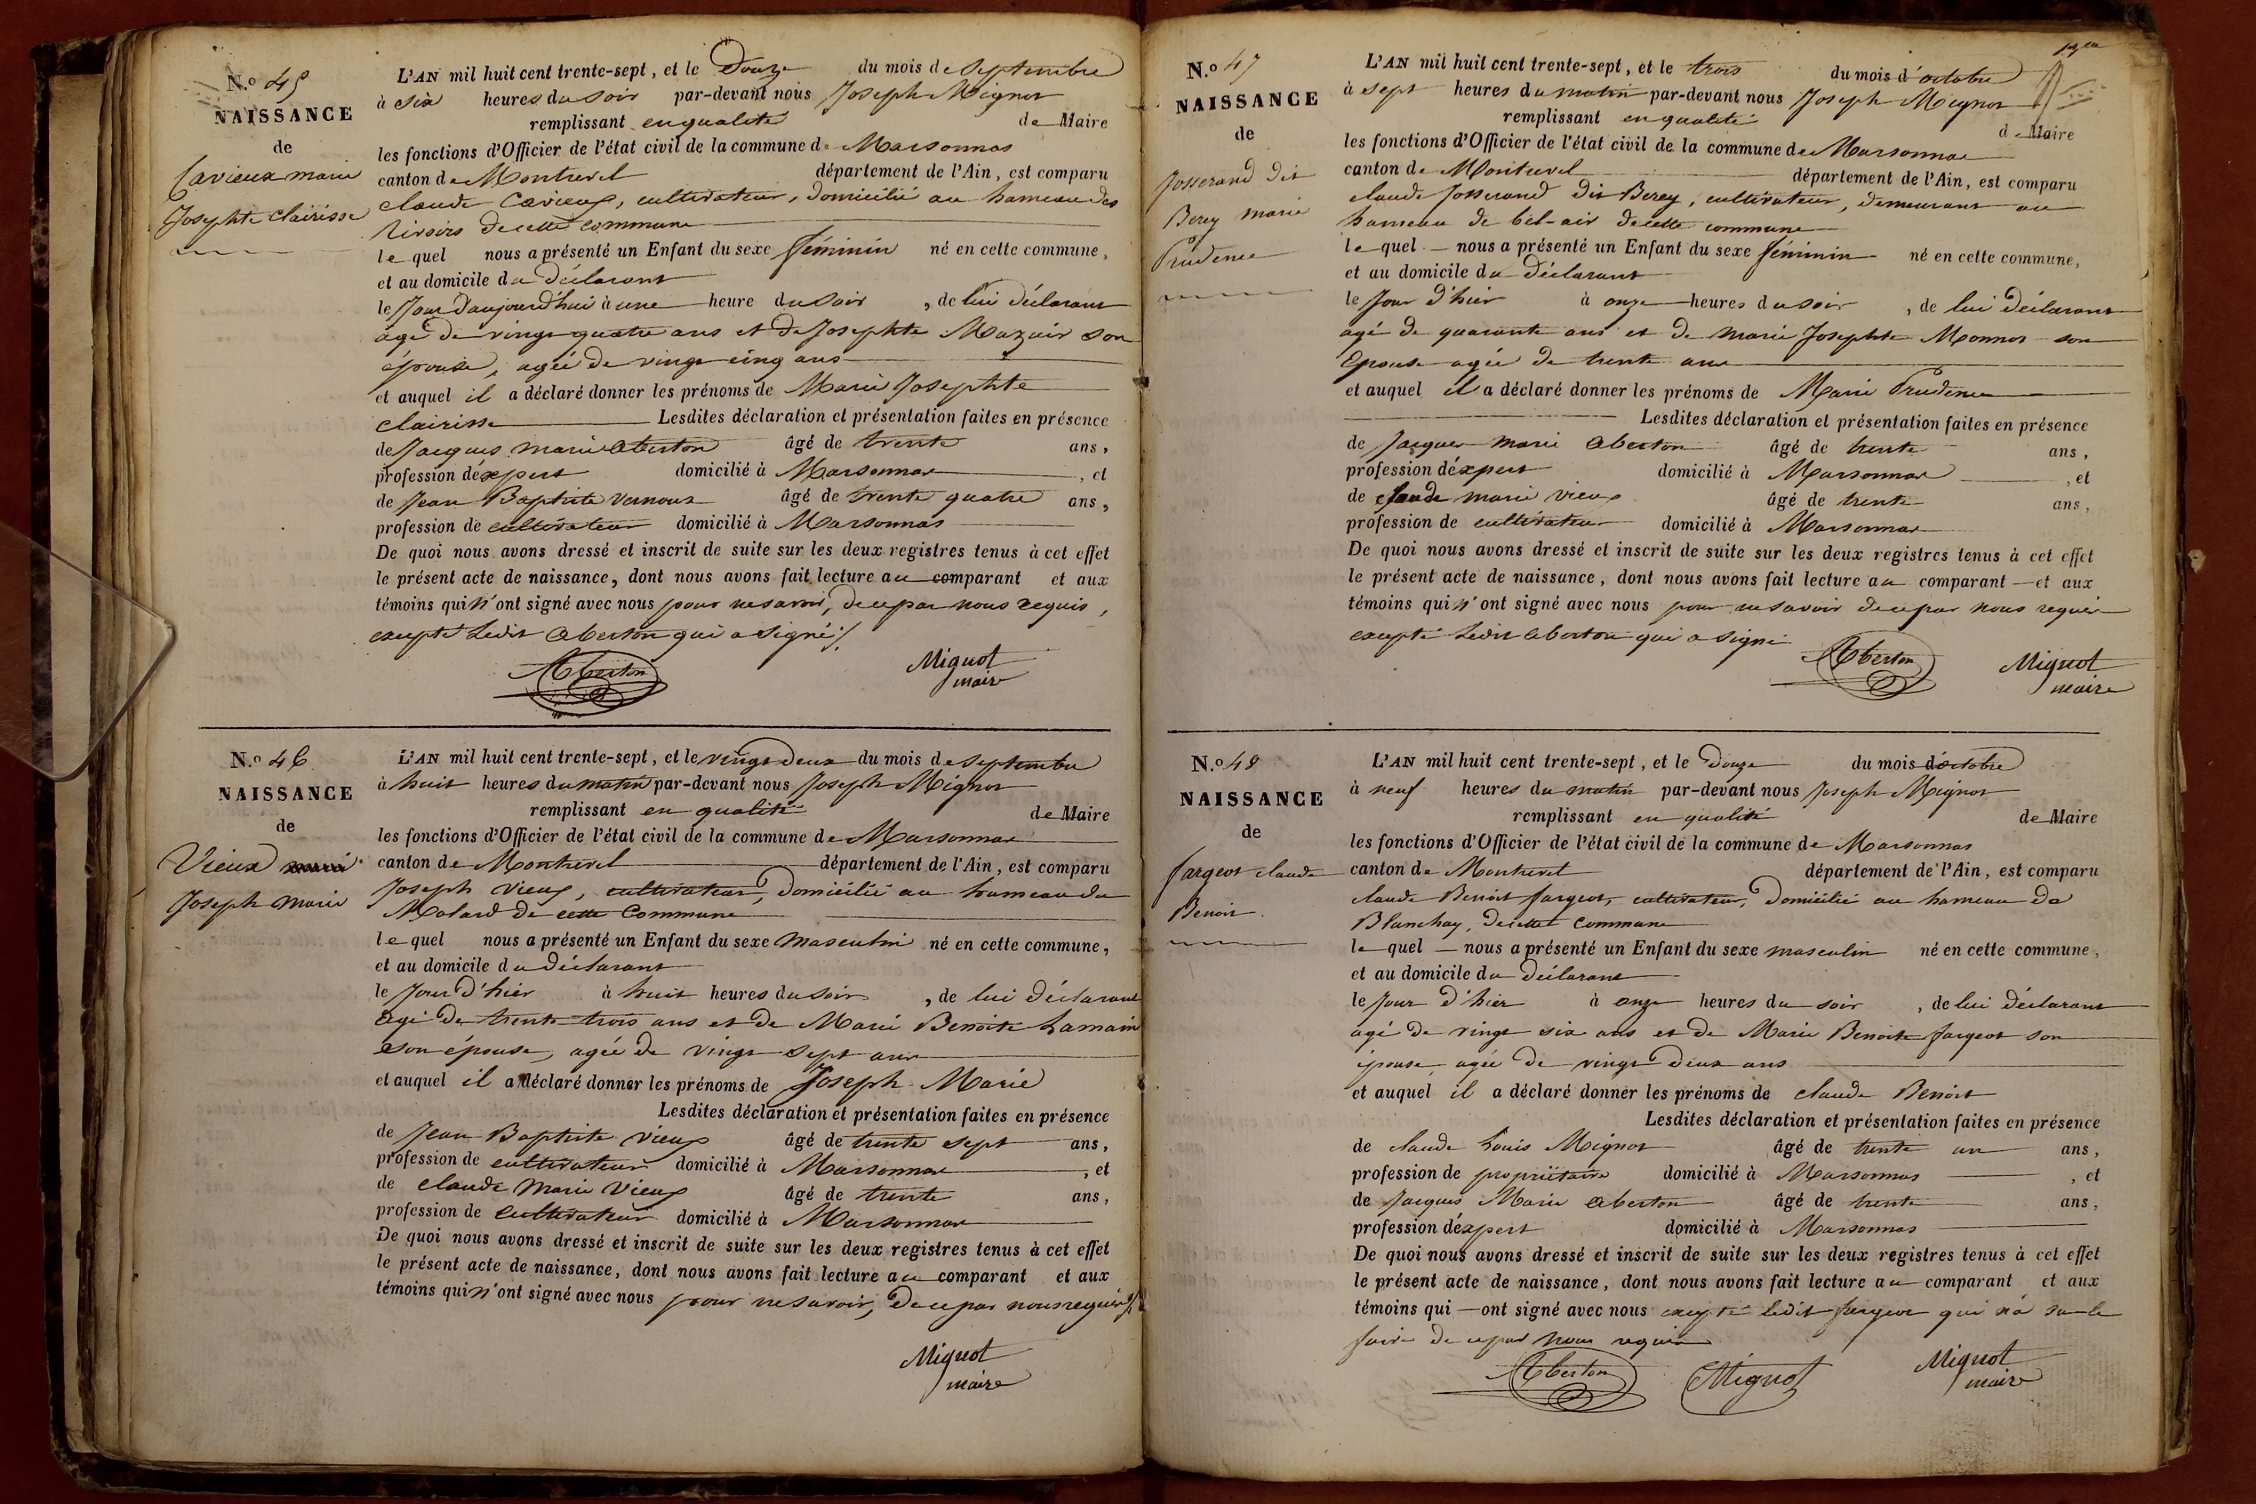 N.o 45
NAISSANCE
de
Cavieux marie
Josephte clairisse
L'AN mil huit cent trente-sept, et le Douze du mois de septembre
à six heures du soir par-devant nous Joseph Mignot
remplissant en qualité de Maire
les fonctions d'Officier de l'état civil de la commune de Marsonnas
canton de Montrevel département de l'Ain, est comparu
claude Cavieux, cultivateur, domicilié au hameau des
de cette commune
lequel nous a présenté un Enfant du sexe féminin né en cette commune,
et au domicile du déclarant
le Jour d'aujourd'hui à une heure du soir, de lui déclarant
agé de vingt quatre ans et de Josephte Mazuir son
épouse, agée de vingt cinq ans
et auquel il a déclaré donner les prénoms de Marie Josephte
clairisse Lesdites déclaration et présentation faites en présence
de Jacques marie aberton âgé de trente ans,
profession d'éxpert domicilié à Marsonnas, et
de Jean Baptiste vernoux âgé de trente quatre ans,
profession de cultivateur domicilié à Marsonnas
De quoi nous avons dressé et inscrit de suite sur les deux registres tenus à cet effet
le présent acte de naissance, dont nous avons fait lecture au comparant et aux
témoins qui n'ont signé avec nous pour ne savoir, de ce par nous requis,
excepté Ledit aberton qui a signé ./.
Aberton
Mignot
maire
N.o 46
NAISSANCE
de
Vieux marie
Joseph marie
L'AN mil huit cent trente-sept, et le vingt deux du mois de septembre
à huit heures du matin par-devant nous Joseph Mignot
remplissant en qualité de Maire
les fonctions d'Officier de l'état civil de la commune de Marsonnas
canton de Montrevel département de l'Ain, est comparu
Joseph vieux, cultivateur, domicilié au hameau du
Molard de cette Commune
lequel nous a présenté un Enfant du sexe masculin né en cette commune,
et au domicile du déclarant
le Jour d'hier à huit heures du soir, de lui déclarant
agé de trente trois ans et de Marie Benoite Lamain
son épouse, agée de vingt sept ans
et auquel il a déclaré donner les prénoms de Joseph Marie
Lesdites déclaration et présentation faites en présence
de Jean Baptiste vieux âgé de trente sept ans,
profession de cultivateur domicilié à Marsonnas, et
de claude Marie Vieux âgé de trente ans,
profession de cultivateur domicilié à Marsonnas
De quoi nous avons dressé et inscrit de suite sur les deux registres tenus à cet effet
le présent acte de naissance, dont nous avons fait lecture au comparant et aux
témoins qui n'ont signé avec nous pour ne savoir, de ce par nous requis ./.
Mignot
maire
N.o 47
NAISSANCE
de
Josserand dit
Berey marie
Prudence
L'AN mil huit cent trente-sept, et le trois du mois d'octobre
à sept heures du matin par-devant nous Joseph Mignot
remplissant en qualité de Maire
les fonctions d'Officier de l'état civil de la commune de Marsonnas
canton de Montrevel département de l'Ain, est comparu
claude Josserand dit Berey, cultivateur, demeurant au
hameau de bel-air de cette commune
lequel nous a présenté un Enfant du sexe féminin né en cette commune,
et au domicile du déclarant
le Jour d'hier à onze heures du soir, de lui déclarant
agé de quarante ans et de marie Josephte Monnot son
Epouse agée de trente ans
et auquel il a déclaré donner les prénoms de Marie Prudence
Lesdites déclaration et présentation faites en présence
de Jacques marie aberton âgé de trente ans,
profession d'éxpert domicilié à Marsonnas, et
de claude marie vieux âgé de trente ans,
profession de cultivateur domicilié à Marsonnas
De quoi nous avons dressé et inscrit de suite sur les deux registres tenus à cet effet
le présent acte de naissance, dont nous avons fait lecture au comparant et aux
témoins qui n'ont signé avec nous pour ne savoir de ce par nous requis
excepté Ledit aberton qui a signé
Aberton
Mignot
maire
N.o 48
NAISSANCE
de
fargeot claude
Benoit
L'AN mil huit cent trente-sept, et le Douze du mois d'octobre
à neuf heures du matin par-devant nous Joseph Mignot
remplissant en qualité de Maire
les fonctions d'Officier de l'état civil de la commune de Marsonnas
canton de Montrevel département de l'Ain, est comparu
claude Benoit fargeot, cultivateur, domicilié au hameau de
Blanchay, de cette commune
lequel nous a présenté un Enfant du sexe masculin né en cette commune,
et au domicile du déclarant
le Jour d'hier à onze heures du soir, de lui déclarant
agé de vingt six ans et de Marie Benoite fargeot son
épouse agée de vingt deux ans
et auquel il a déclaré donner les prénoms de claude Benoit
Lesdites déclaration et présentation faites en présence
de claude Louis Mignot âgé de trente un ans,
profession de propriétaire domicilié à Marsonnas, et
de Jacques Marie aberton âgé de trente ans,
profession d'éxpert domicilié à Marsonnas
De quoi nous avons dressé et inscrit de suite sur les deux registres tenus à cet effet
le présent acte de naissance, dont nous avons fait lecture au comparant et aux
témoins qui ont signé avec nous excepté ledit fargeot qui n'a su le
faire de ce par nous requis
Aberton
Mignot
Mignot
maire